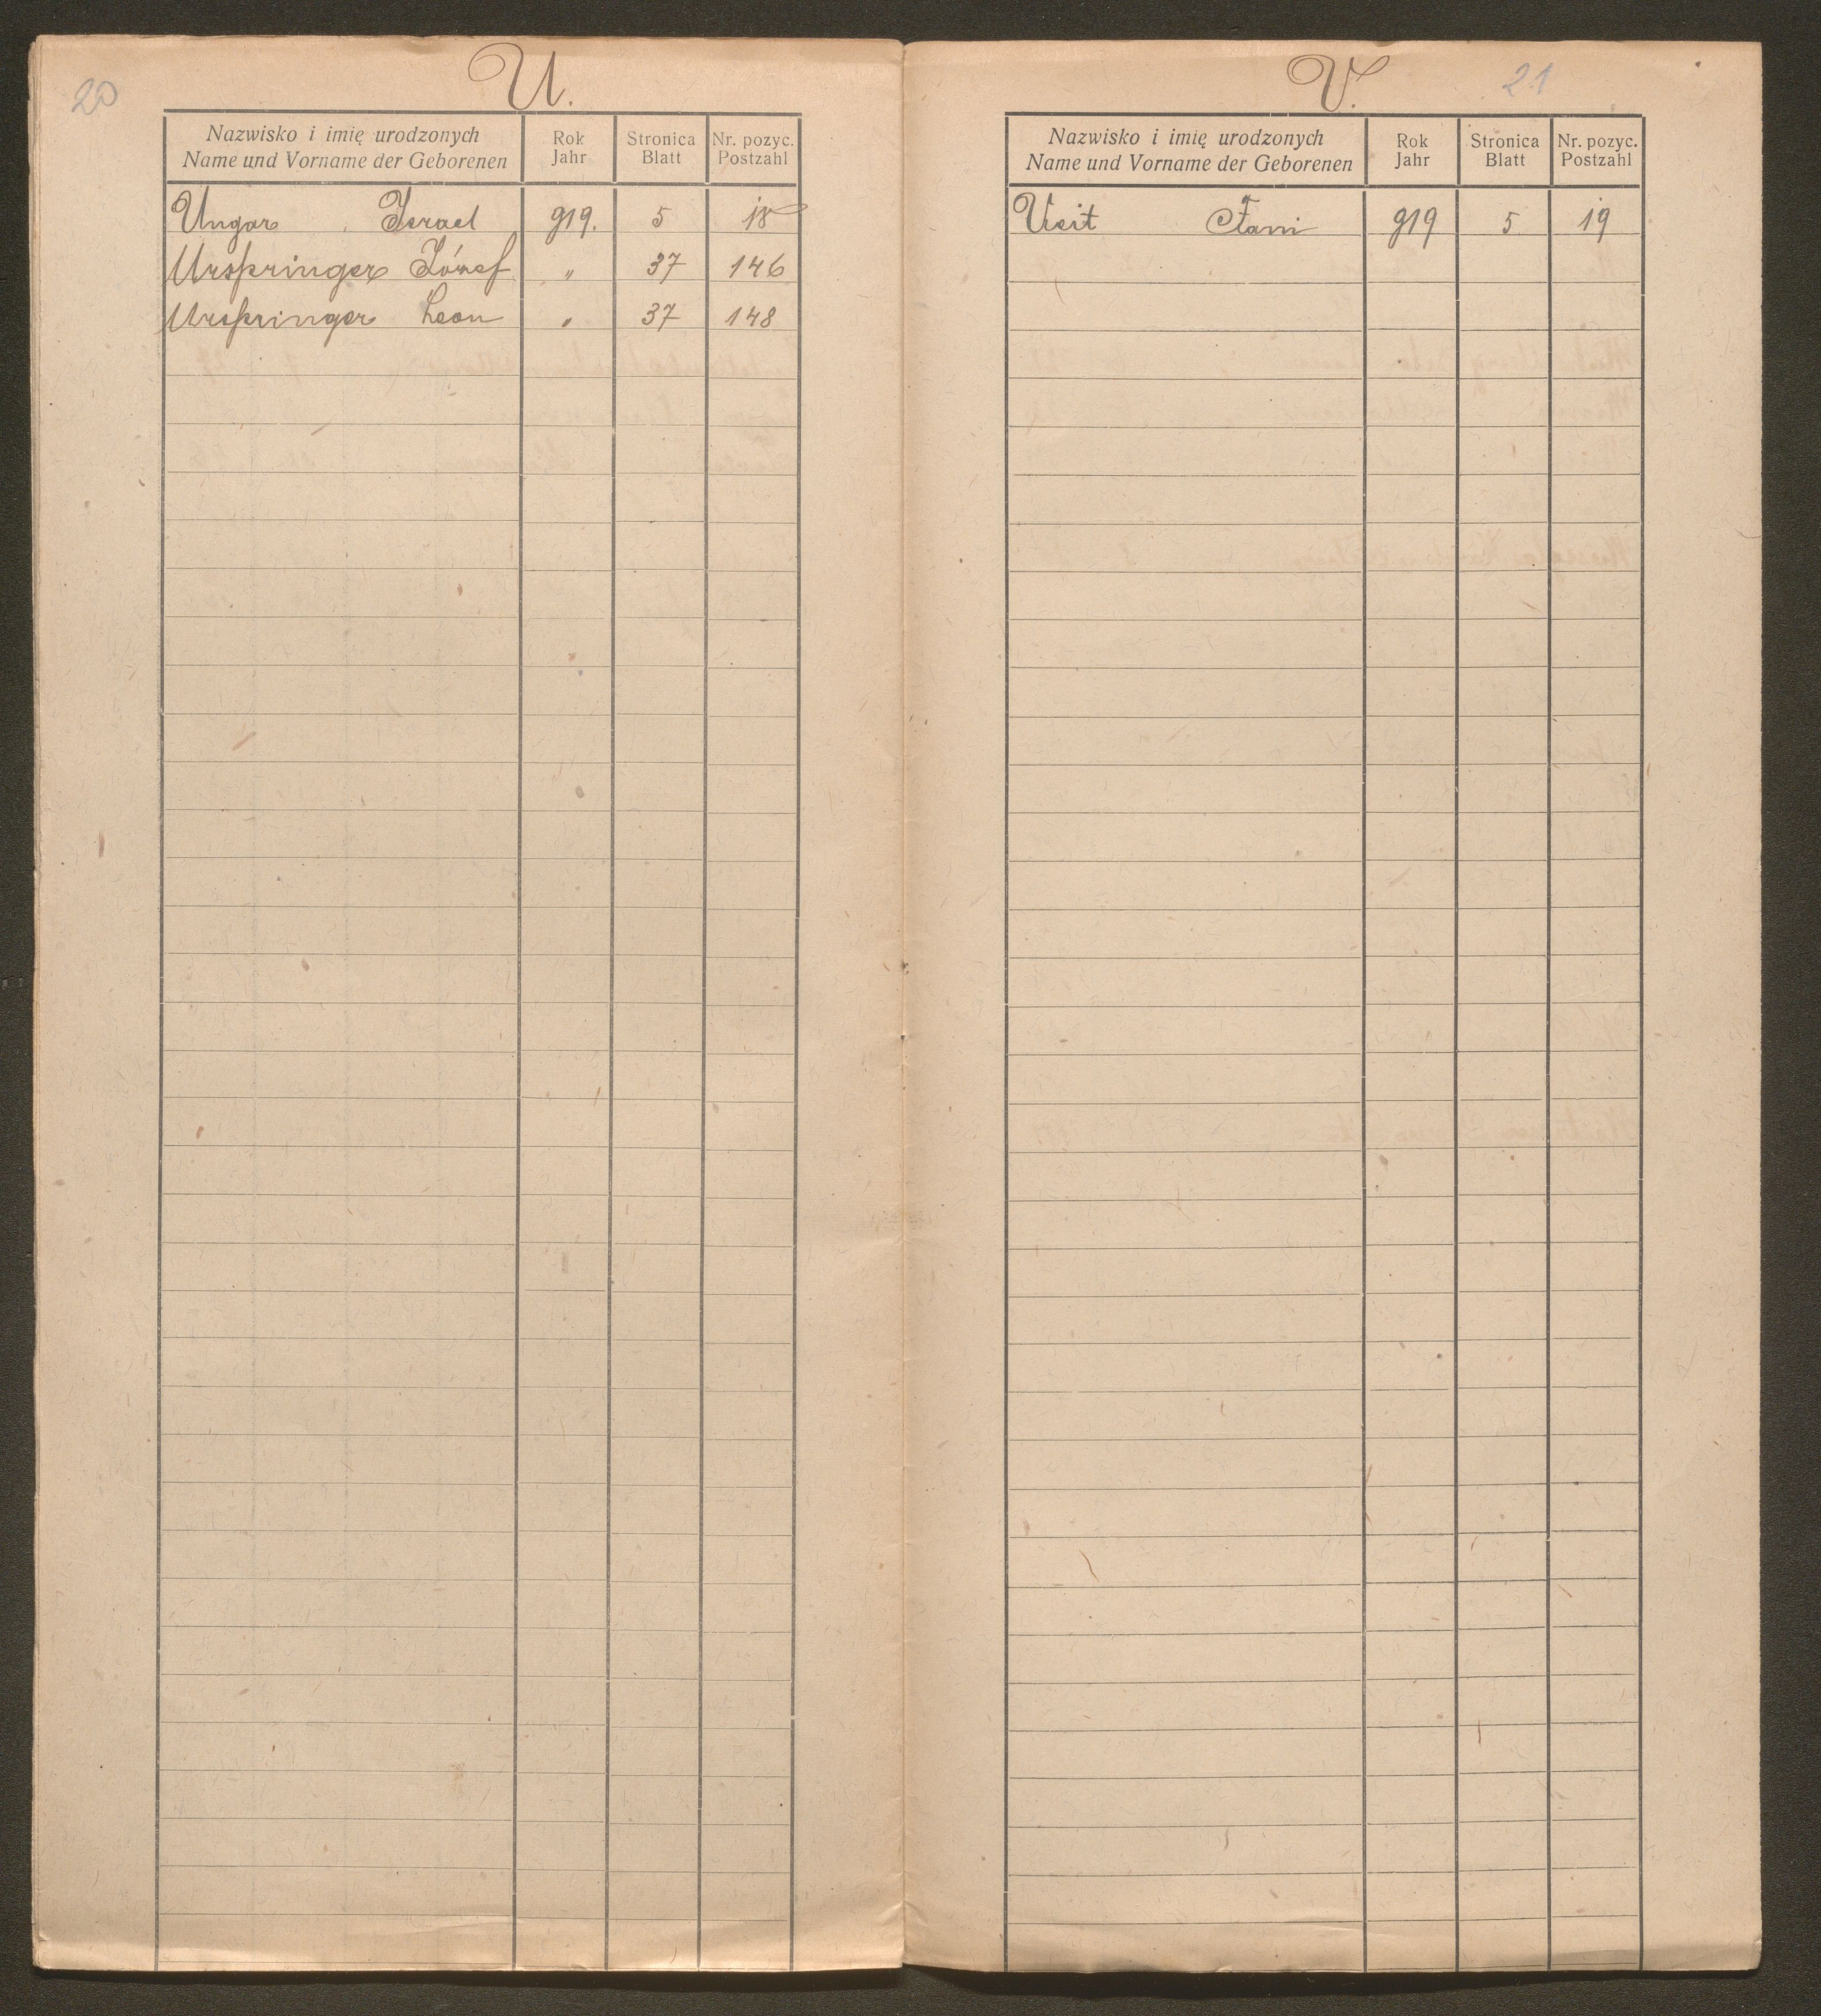 20
U.
Nazwisko i imię urodzonych Rok Stronica Nr. pozyc.
Name und Vorname der Geborenen Jahr Blatt Postzahl
Ungar Israel 919. 5 18
Urspringer Józef " 37 146
Urspringer Leon " 37 148
V. 21
Nazwisko i imię urodzonych Rok Stronica Nr. pozyc.
Name und Vorname der Geborenen Jahr Blatt Postzahl
Veit Fani 919 5 19